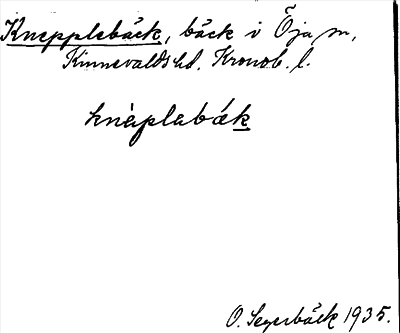 Knepplebäck, bäck i Öja sn,
Kinnevalds hd. Kronob. l.
knèplabǽk
O. Segerbäck 1935.